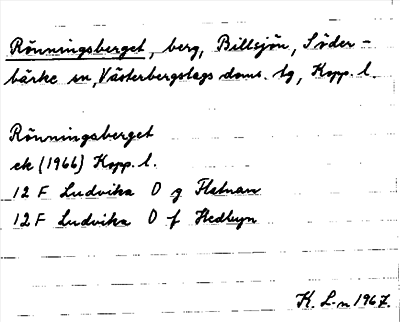 Rönningsberget, berg, Billsjön, Söder-
bärke sn, Västerbergslags doms. tg, Kopp. l.
Rönningsberget
ek (1966) Kopp. l.
12 F Ludvika O g Flatnan
12 F Ludvika O f Hedbyn
K. L-n 1967.